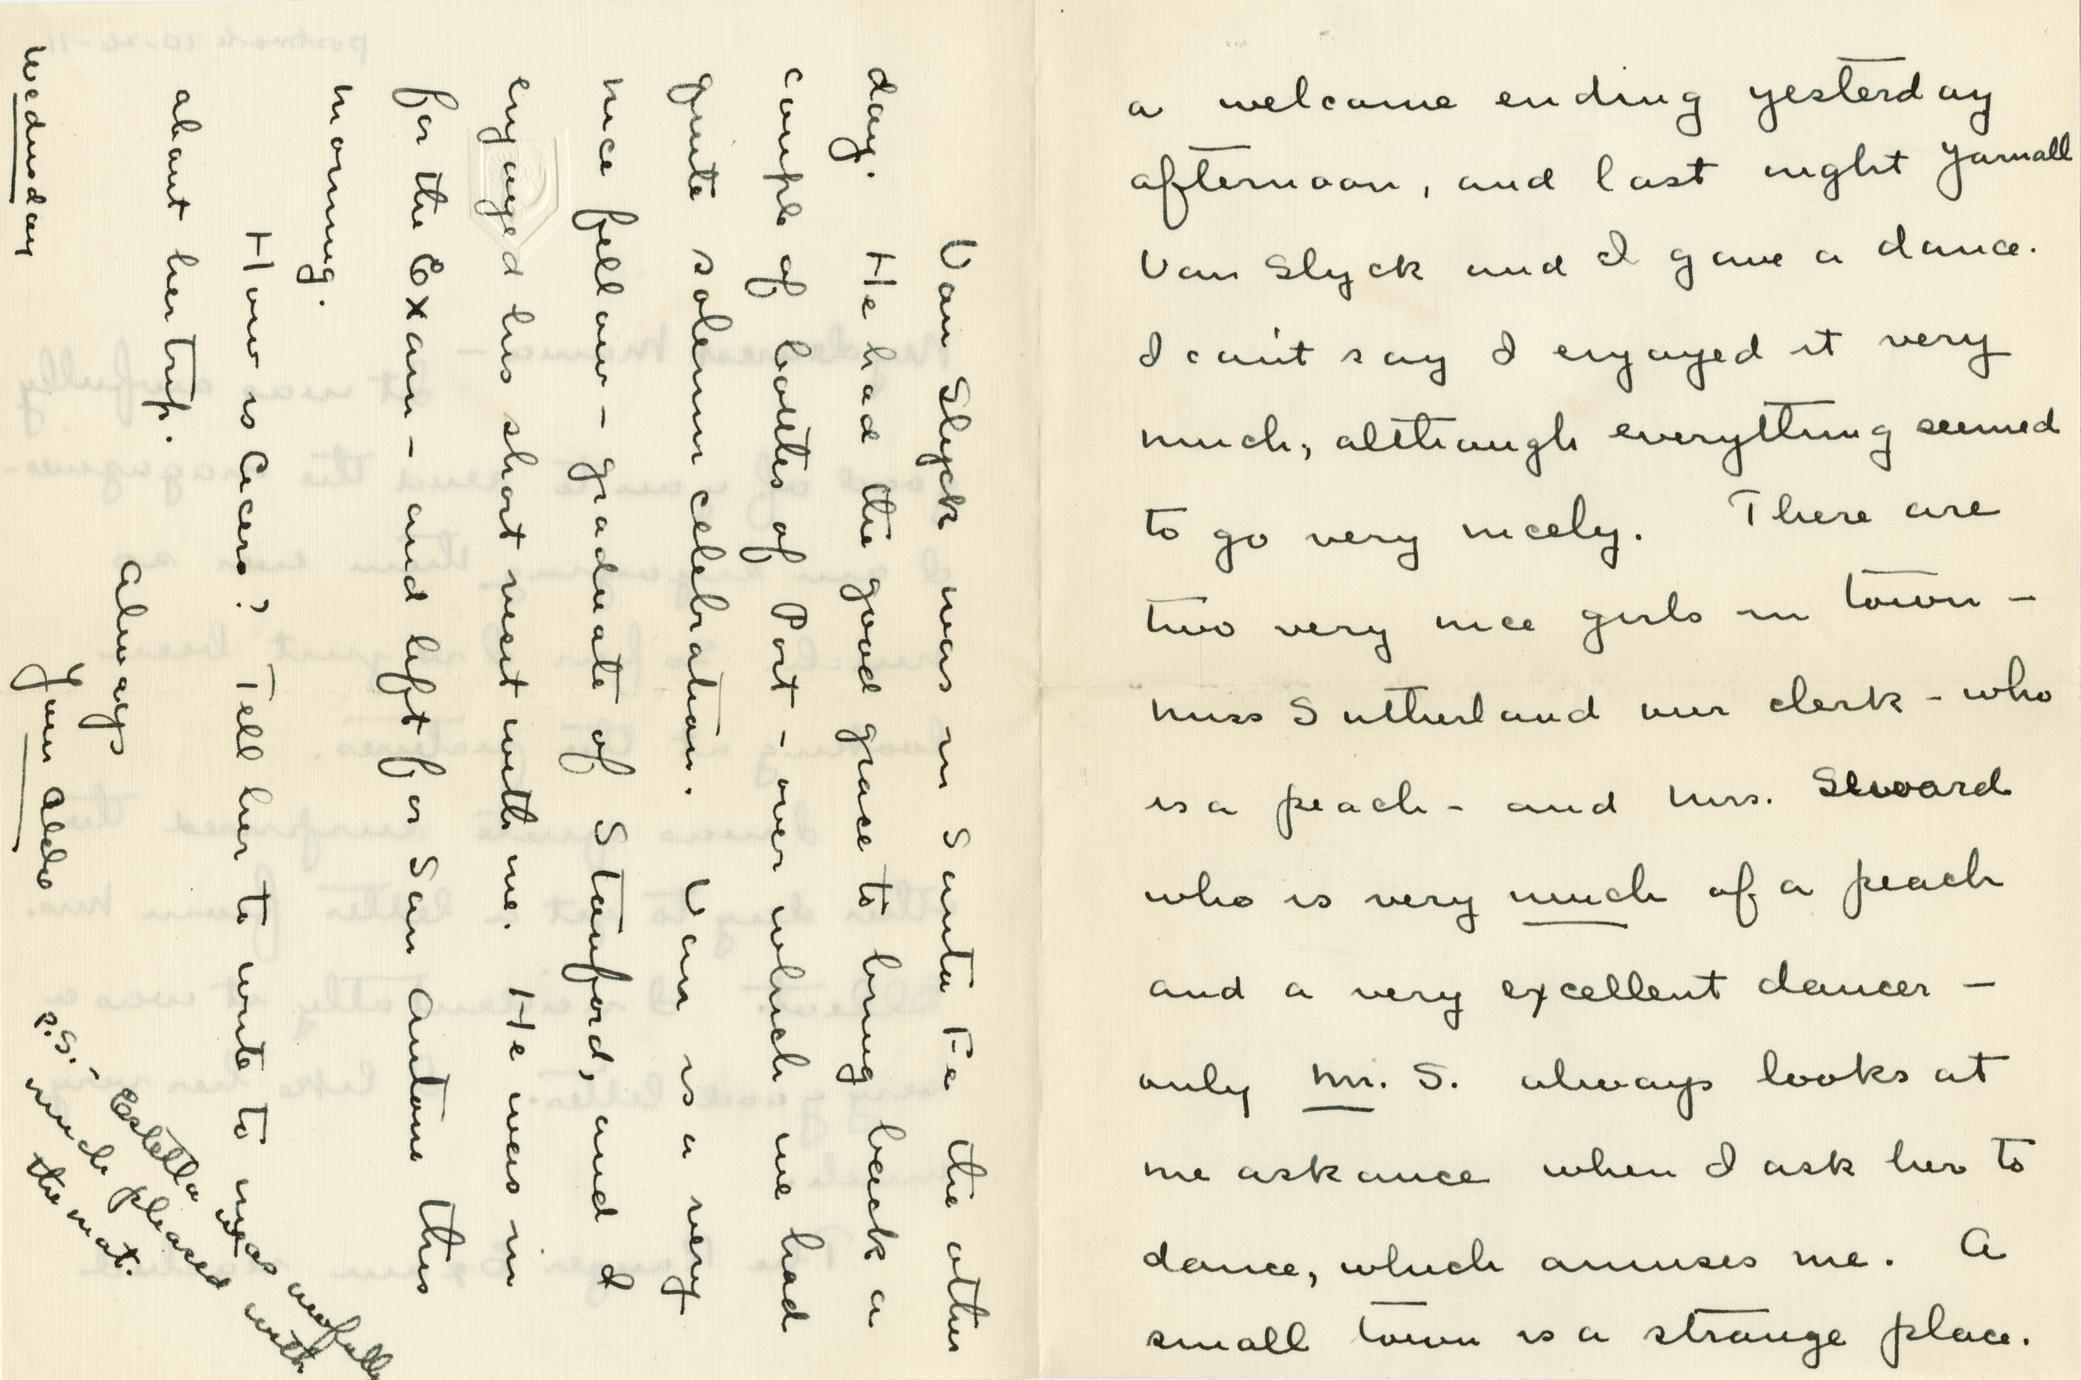 a welcome ending yesterday
afternoon, and last night Yarnall
Van Slyck and I gave a dance.
I can't say I enjoyed it very
much, although everything seemed
to go very nicely. There are
two very nice girls in town –
Miss Sutherland our clerk – who
is a peach – and Mrs. Seward
who is very much of a peach
and a very excellent dancer –
only Mr. S. always looks at
me askance when I ask her to
dance, which amuses me. A
small town is a strange place.
Van Slyck was in Santa Fe the other
day. He had the good grace to bring back a
couple of bottles of Port – over which we had
quite solemn celebration. Van is a very
nice fellow – graduate of Stanford, and I
enjoyed his short visit with me. He was in
for the Exam – and left for San Antone this
morning.
How is Cicero? Tell her to write to me
about her trip.
Always
Your Aldo
Wednesday
P.S. – Estella was awfully
much pleased with
the mat.